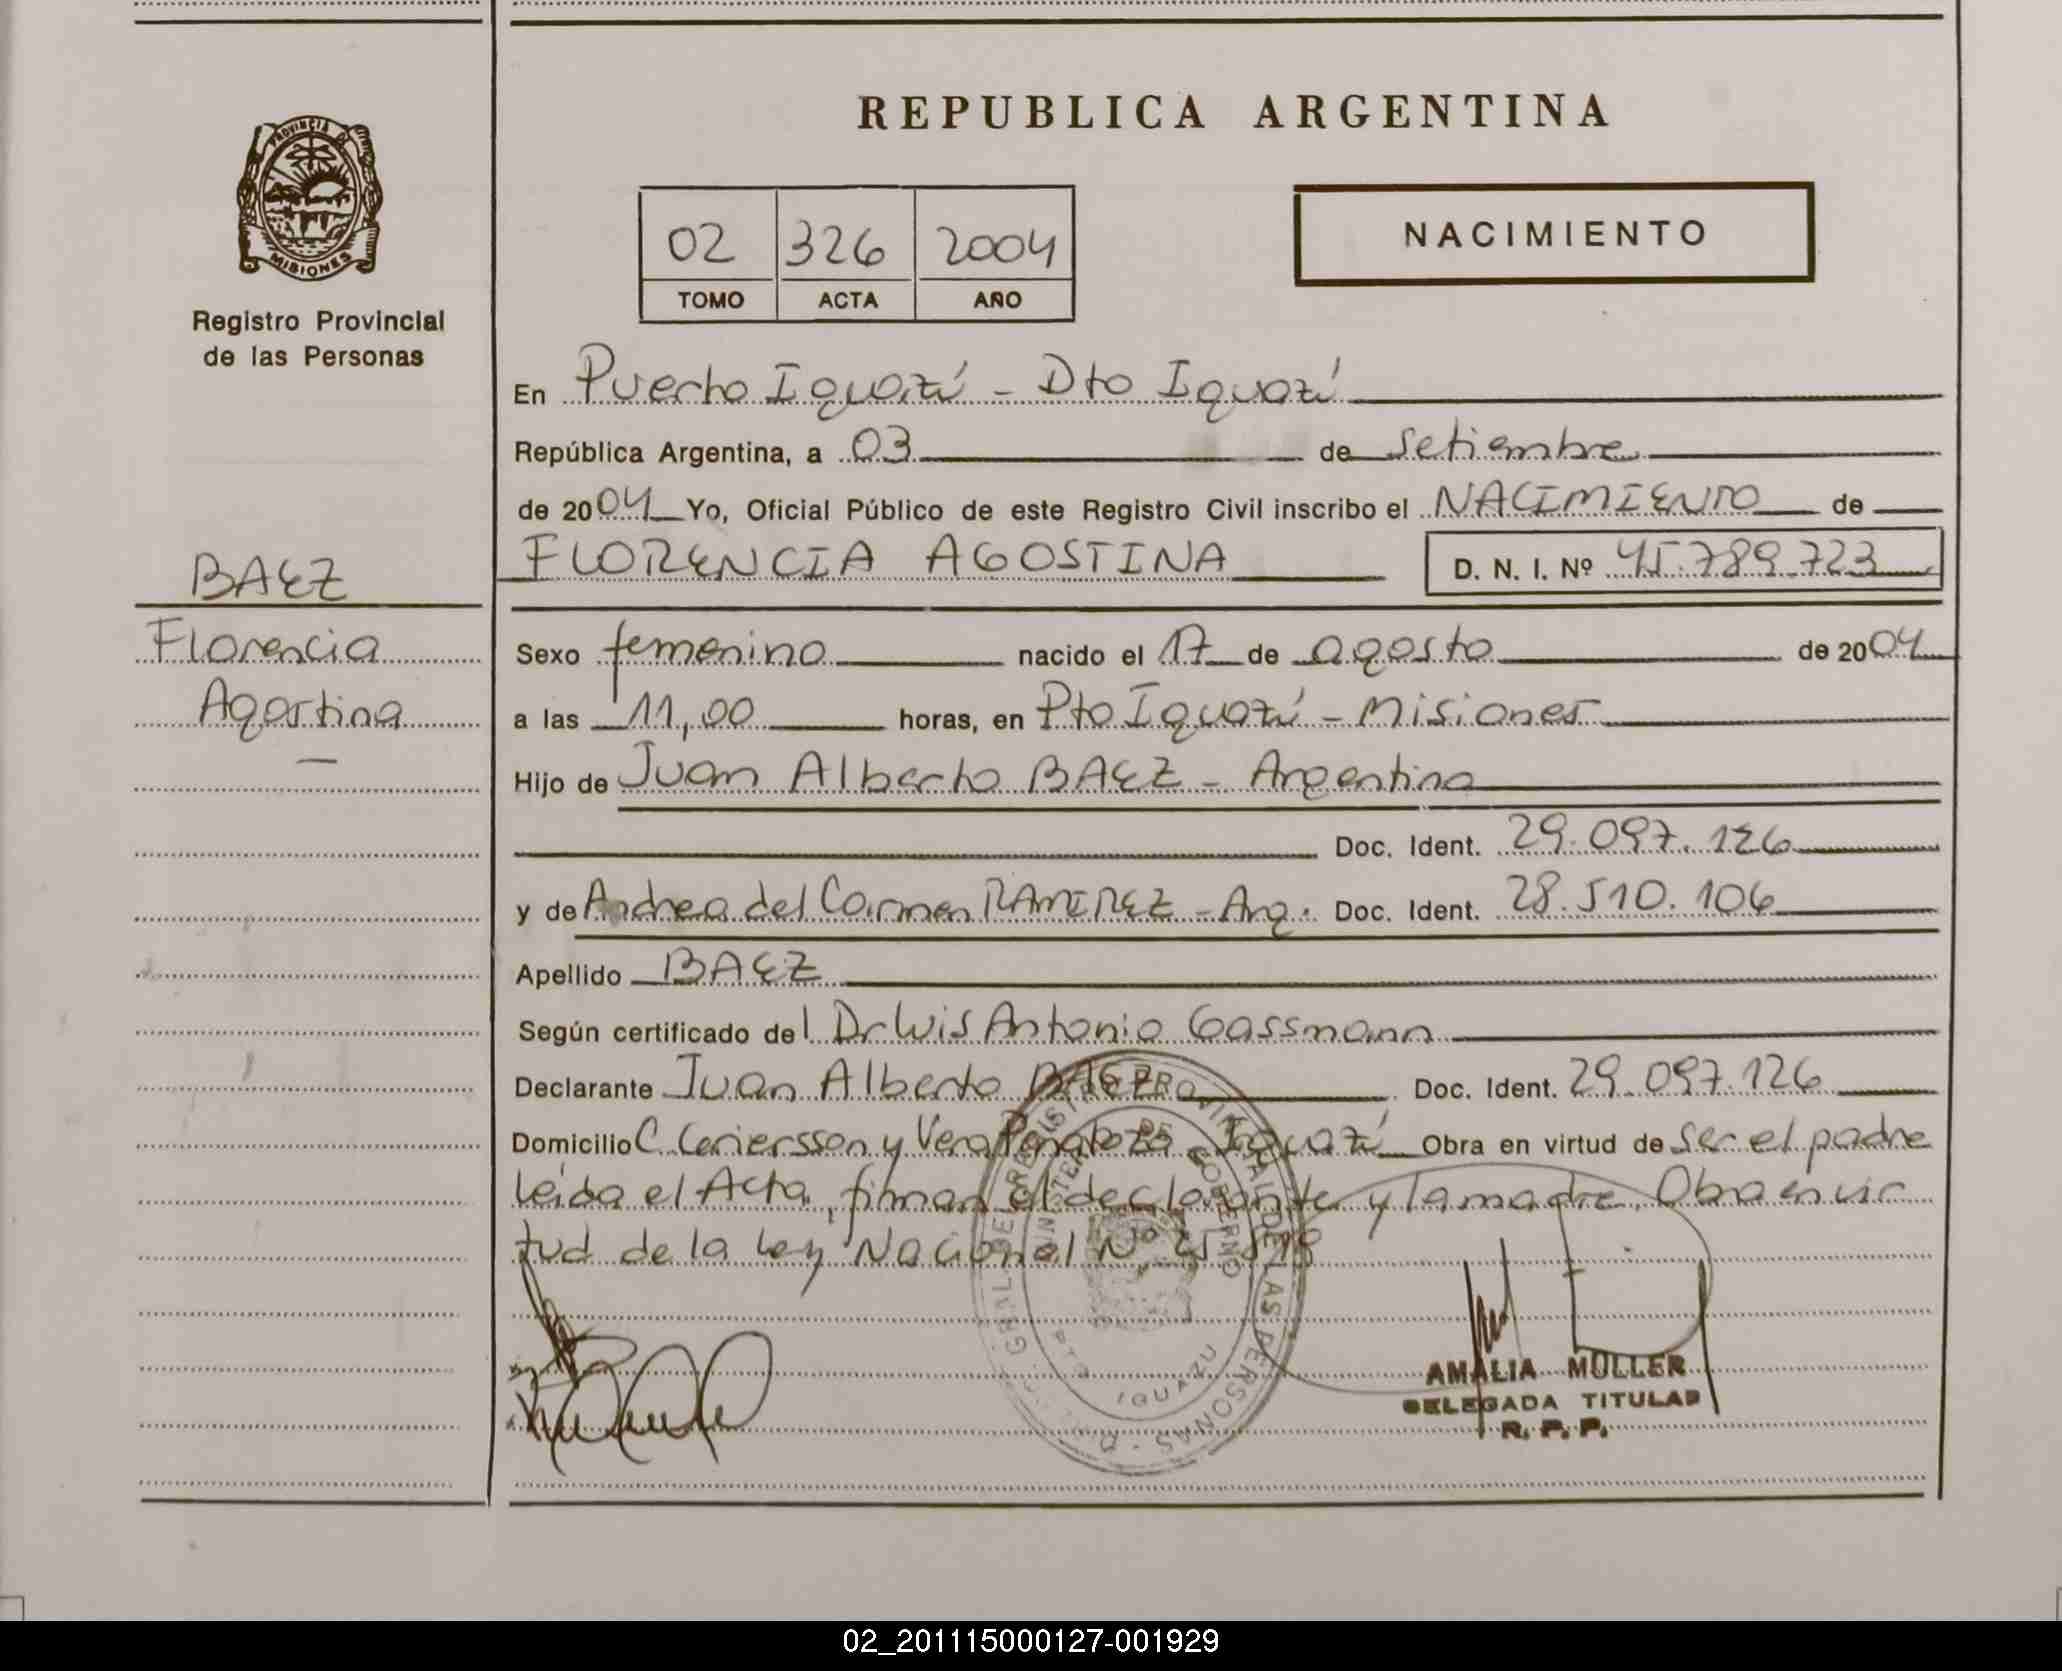 REPUBLICA ARGENTINA
PROVINCIA DE MISIONES
Registro Provincial
de las Personas
02 326 2004
TOMO ACTA AÑO
NACIMIENTO
En Puerto Iguazú - Dto Iguazú
República Argentina, a 03 de setiembre
de 2004 Yo, Oficial Público de este Registro Civil inscribo el NACIMIENTO de
FLORENCIA AGOSTINA D. N. I. Nº 45.789.723
BAEZ
Florencia
Agostina
Sexo femenino nacido el 17 de agosto de 2004
a las 11,00 horas, en Pto Iguazú - Misiones
Hijo de Juan Alberto BAEZ - Argentino
Doc. Ident. 29.097.126
y de Andrea del Carmen RAMIREZ - Arg. Doc. Ident. 28.510.106
Apellido BAEZ
Según certificado del Dr Luis Antonio Gassmann
Declarante Juan Alberto BAEZ Doc. Ident. 29.097.126
Domicilio C. y Vera Peñaloza Iguazú Obra en virtud de ser el padre
leída el Acta, firman el declarante y la madre. Obra en vir
tud de la Ley Nacional Nº
REGISTRO PROVINCIAL DE LAS PERSONAS
MINISTERIO DE GOBIERNO
PTO IGUAZU
AMALIA MULLER
DELEGADA TITULAR
R. P. P.
02_201115000127-001929